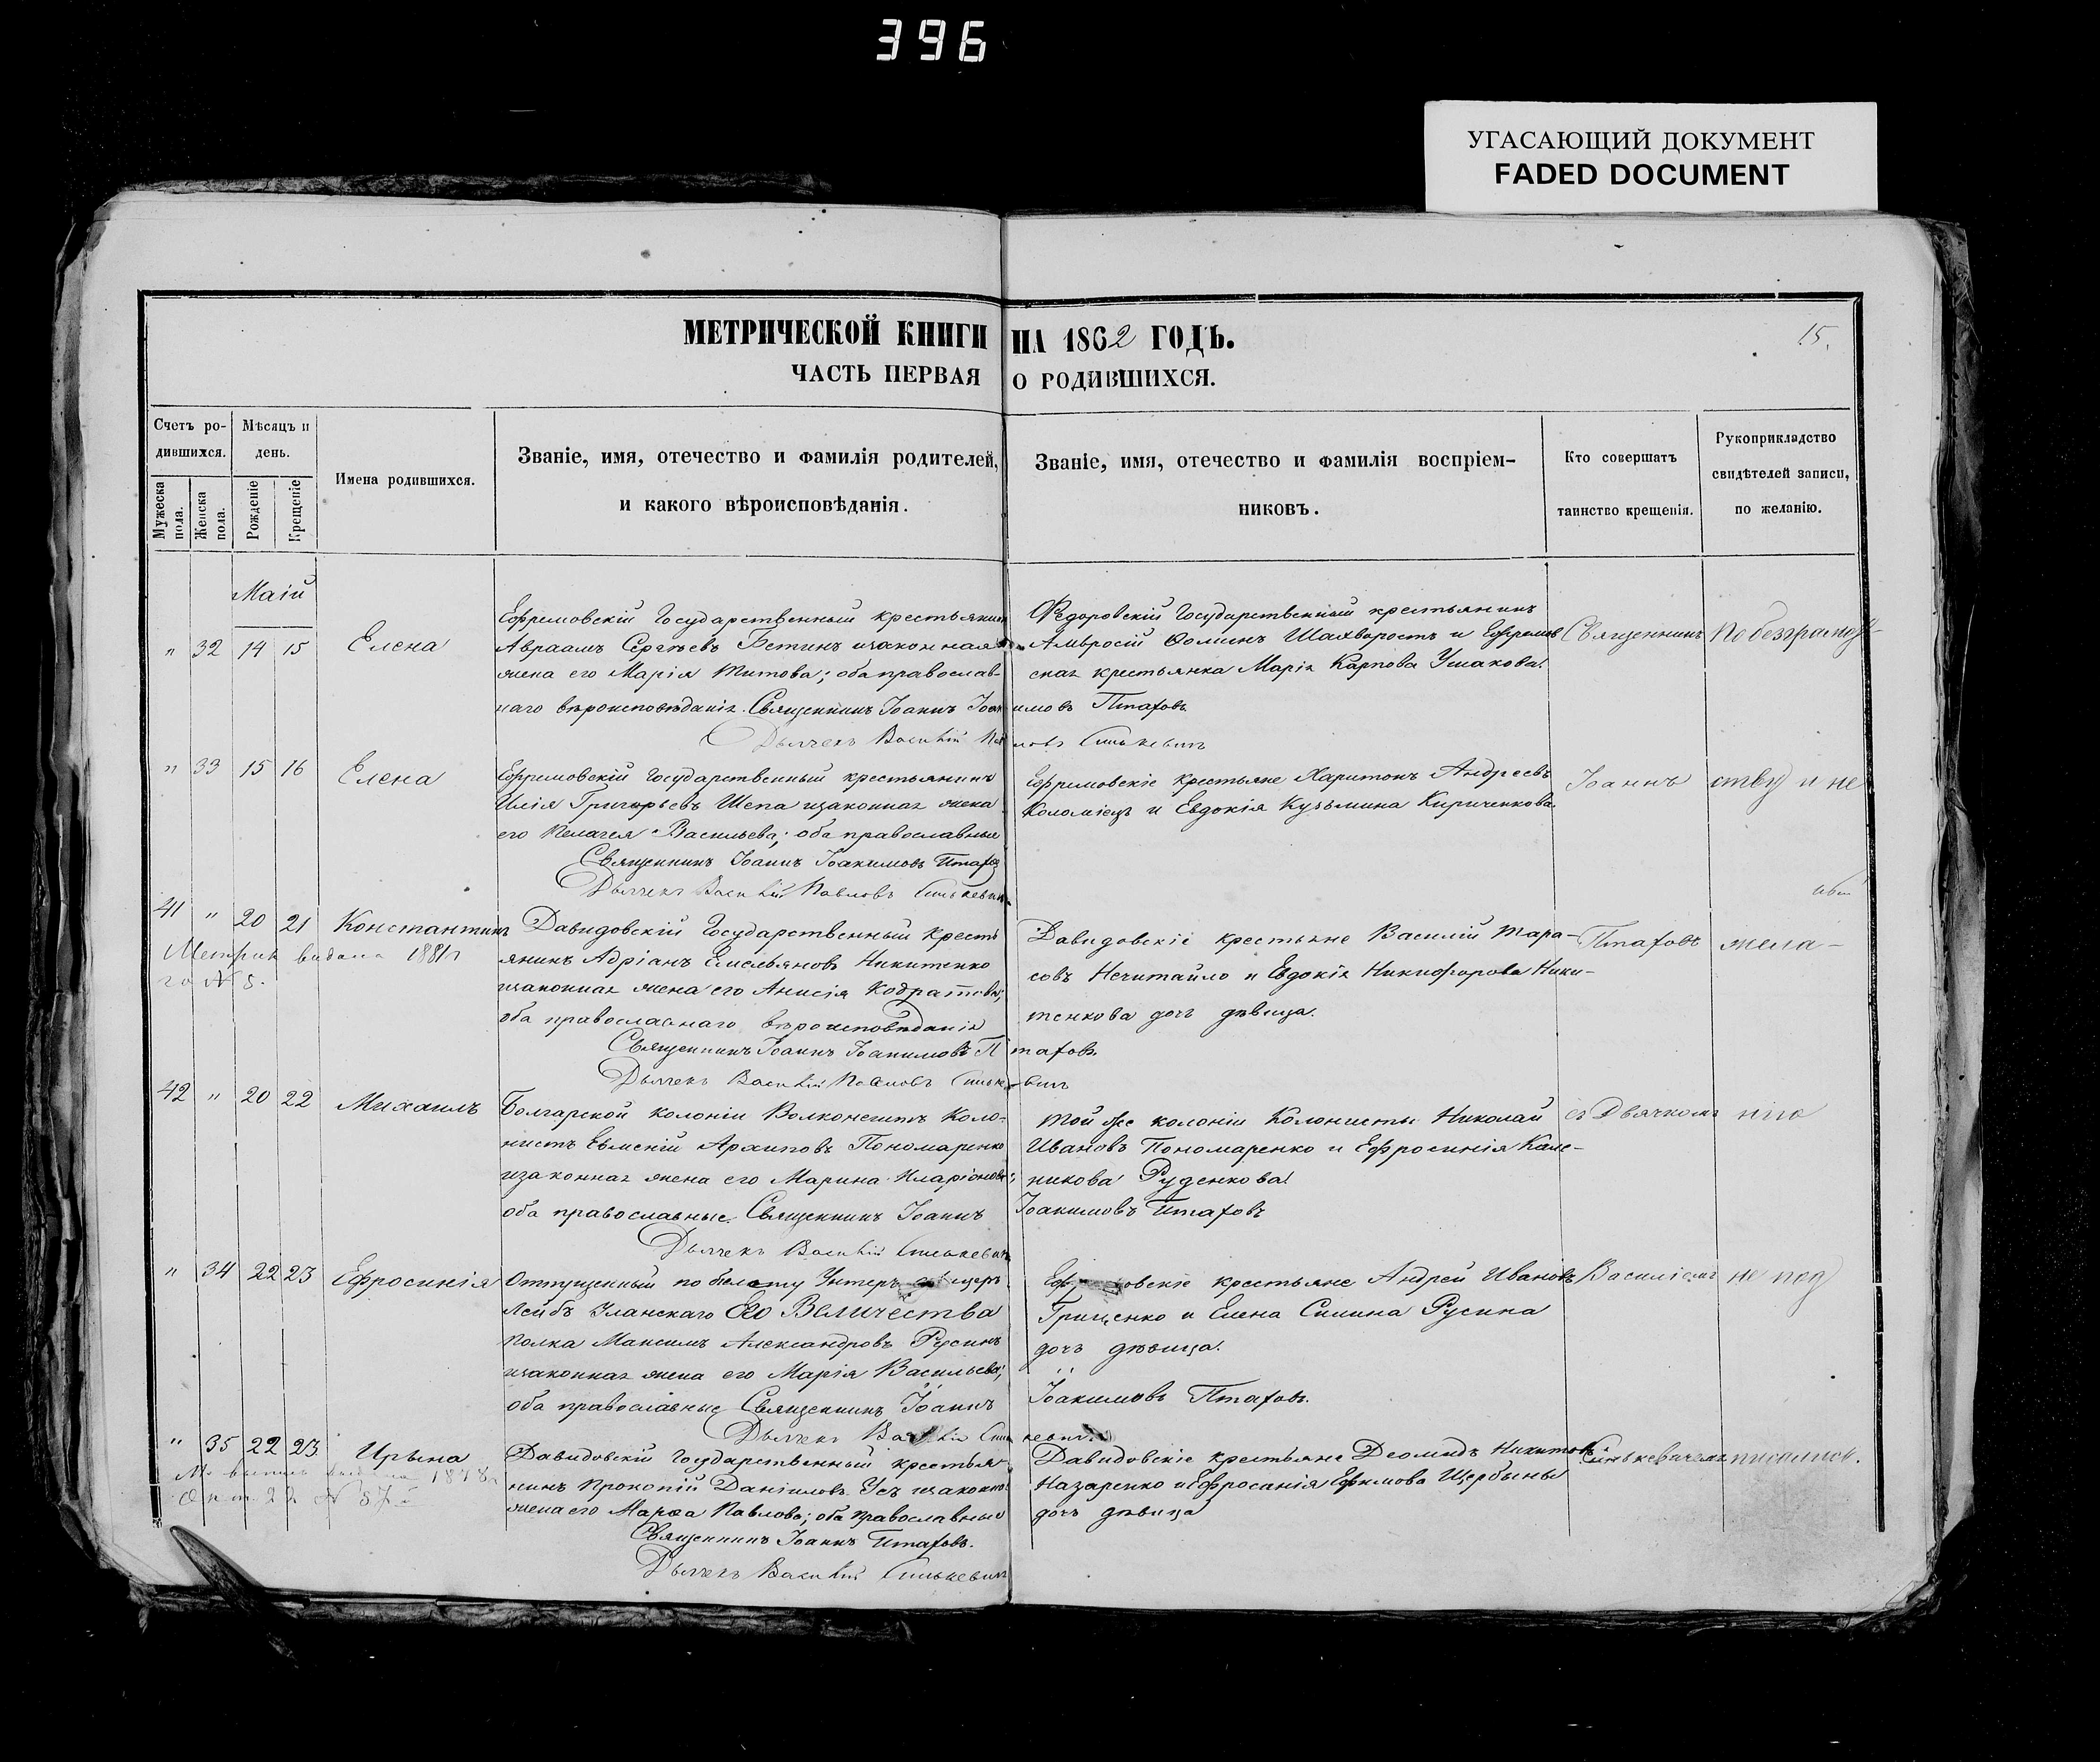 396
УГАСАЮЩИЙ ДОКУМЕНТ
FADED DOCUMENT
МЕТРИЧЕСКОЙ КНИГИ НА 1862 ГОДЪ.
15.
ЧАСТЬ ПЕРВАЯ О РОДИВШИХСЯ.
Счетъ ро-
дившихся.
Мѣсяцъ и
день.
Мужеска
пола.
Женска
пола.
Рожденіе
Крещеніе
Имена родившихся.
Званіе, имя, отечество и фамилія родителей,
и какого вѣроисповѣданія.
Званіе, имя, отечество и фамилія воспріем-
никовъ.
Кто совершатъ
таинство крещенія.
Рукоприкладство
свидѣтелей записи,
по желанію.
Маій
" 32 14 15 Елена
Ефремовскій Государственный крестьянин
Авраамъ Сергѣевъ Бетинъ изаконная
жена его Марія Титова; оба православ-
наго вѣроисповѣданія. Священникъ Іоаннъ Іоакимовъ Птаховъ
Дьячекъ Василій Павловъ Синькевичъ
Ѳедоровскій Государственный крестьянинъ
Амвросій Ѳоминъ Шахворостъ и Ефремов
ская крестьянка Марія Карпова Ушакова.
Священникъ
по безграмот-
" 33 15 16 Елена
Ефремовскій Государственный крестьянинъ
Илія Григорьевъ Шепа изаконная жена
его Пелагея Васильева; оба православные
Священникъ Іоаннъ Іоакимовъ Птаховъ
Дьячекъ Василій Павловъ Синькевичъ
Ефремовскіе крестьяне Харитонъ Андреевъ
Коломіецъ и Евдокія Кузьмина Кириченкова.
Іоаннъ
ству и не
41 " 20 21 Константинъ
Метрик видана 1881г
го № 8.
Давидовскій Государственный кресть
янинъ Адріанъ Емельяновъ Никитенко
изаконная жена его Анисія Кодратова;
оба православнаго вѣроисповѣданія
Священникъ Іоаннъ Іоакимовъ Птаховъ
Дьячекъ Василій Павловъ Синькевичъ
Давидовскіе крестьяне Василій Тара-
совъ Нечитайло и Евдокія Никифорова Ники-
тенкова дочь дѣвица.
Птаховъ
жела-
42 " 20 22 Михаилъ
Болгарской колоніи Волконештъ Коло-
нистъ Евменій Архиповъ Пономаренко
изаконная жена его Марина Иларіонова;
оба православные. Священникъ Іоаннъ Іоакимовъ Птаховъ
Дьячекъ Василій Синькевичъ
Той же колоніи Колонисты Николай
Ивановъ Пономаренко и Ефросинія Кале-
никова Руденкова.
съ Дьячкомъ
нію
" 34 22 23 Ефросинія
Отпущенный по билету Унтеръ
Лейбъ Уланскаго Его Величества
полка Максимъ Александровъ Русинъ
изаконная жена его Марія Васильева;
оба православные Священникъ Іоаннъ Іоакимовъ Птаховъ.
Дьячекъ Василій Синькевичъ
крестьяне Андрей Ивановъ
Гриценко и Елена Силина Русина
дочь дѣвица.
Василіемъ
не под
" 35 22 23 Ирына
видана 1878г
Окт. 22 №
Давидовскій Государственный крестья
нинъ Прокопій Даніиловъ Усъ изаконная
жена его Марѳа Павлова; оба православные
Священникъ Іоаннъ Птаховъ.
Дьячекъ Василій Синькевичъ
Давидовскіе крестьяне Деомидъ Никитовъ
Назаренко и Ефросинія Ефимова Щербыны
дочь дѣвица
Синькевичемъ
писались.